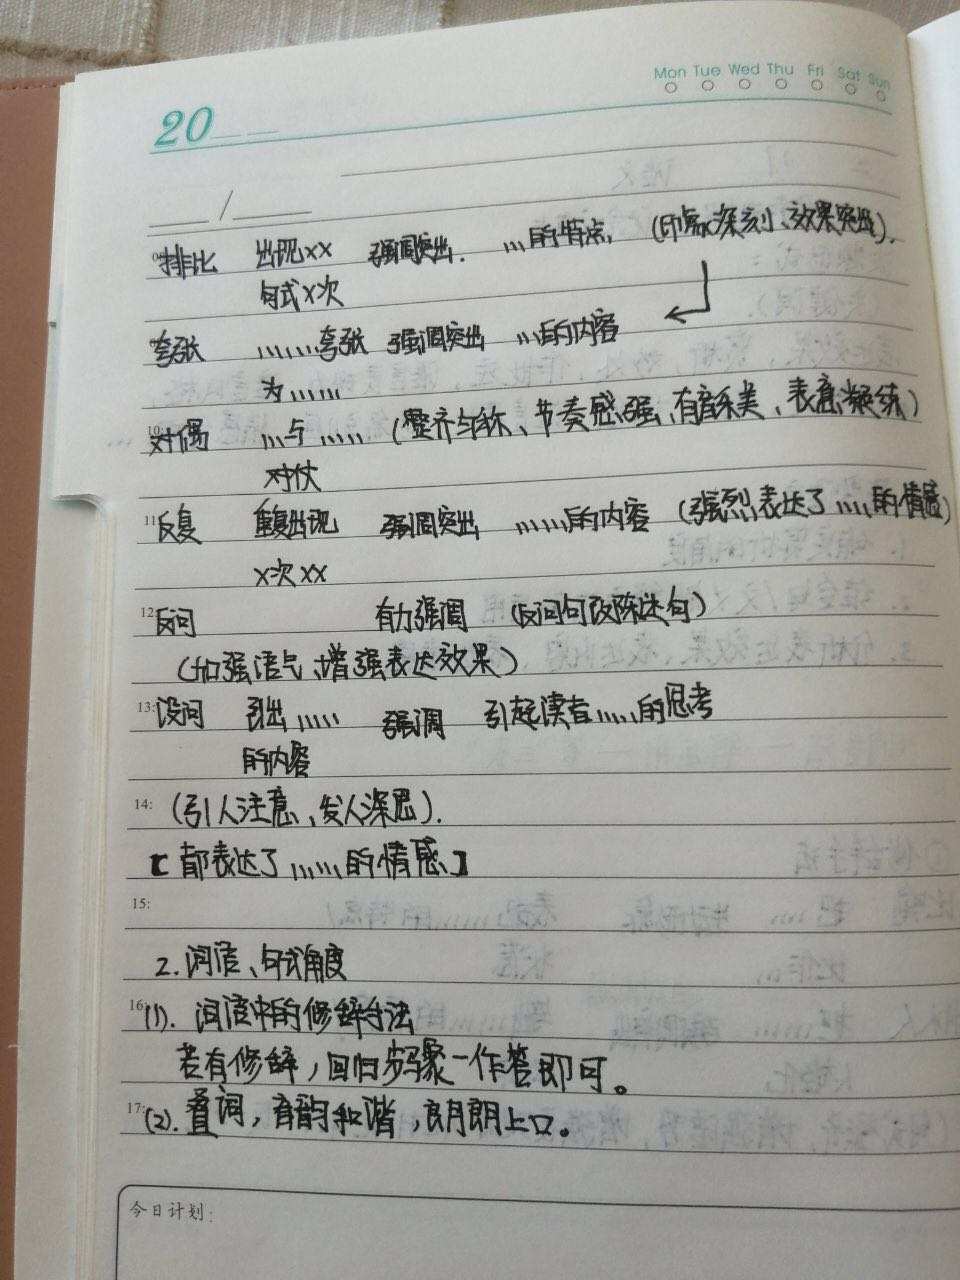 Mon Tue Wed Thu Fri Sat Sun
20
/
排比 出现xx 强调突出. ……的特点, (印象深刻、效果突出).
句式x次
夸张 ……夸张 强调突出 …的内容
为……
10: 对偶 …与…… (整齐匀称、节奏感强、有音乐美、表意凝练)
对仗
11: 反复 重复出现 强调突出 ……的内容 (强烈表达了……的情感)
x次xx
12: 反问 有力强调 (反问句改陈述句)
(加强语气、增强表达效果)
13: 设问 引出…… 强调 引起读者……的思考
的内容
14: (引人注意、发人深思).
【都表达了……的情感】
15:
2. 词语、句式角度
16: (1). 词语中的修辞手法
若有修辞,回归步骤一作答即可。
17: (2). 叠词,音韵和谐,朗朗上口。
今日计划: